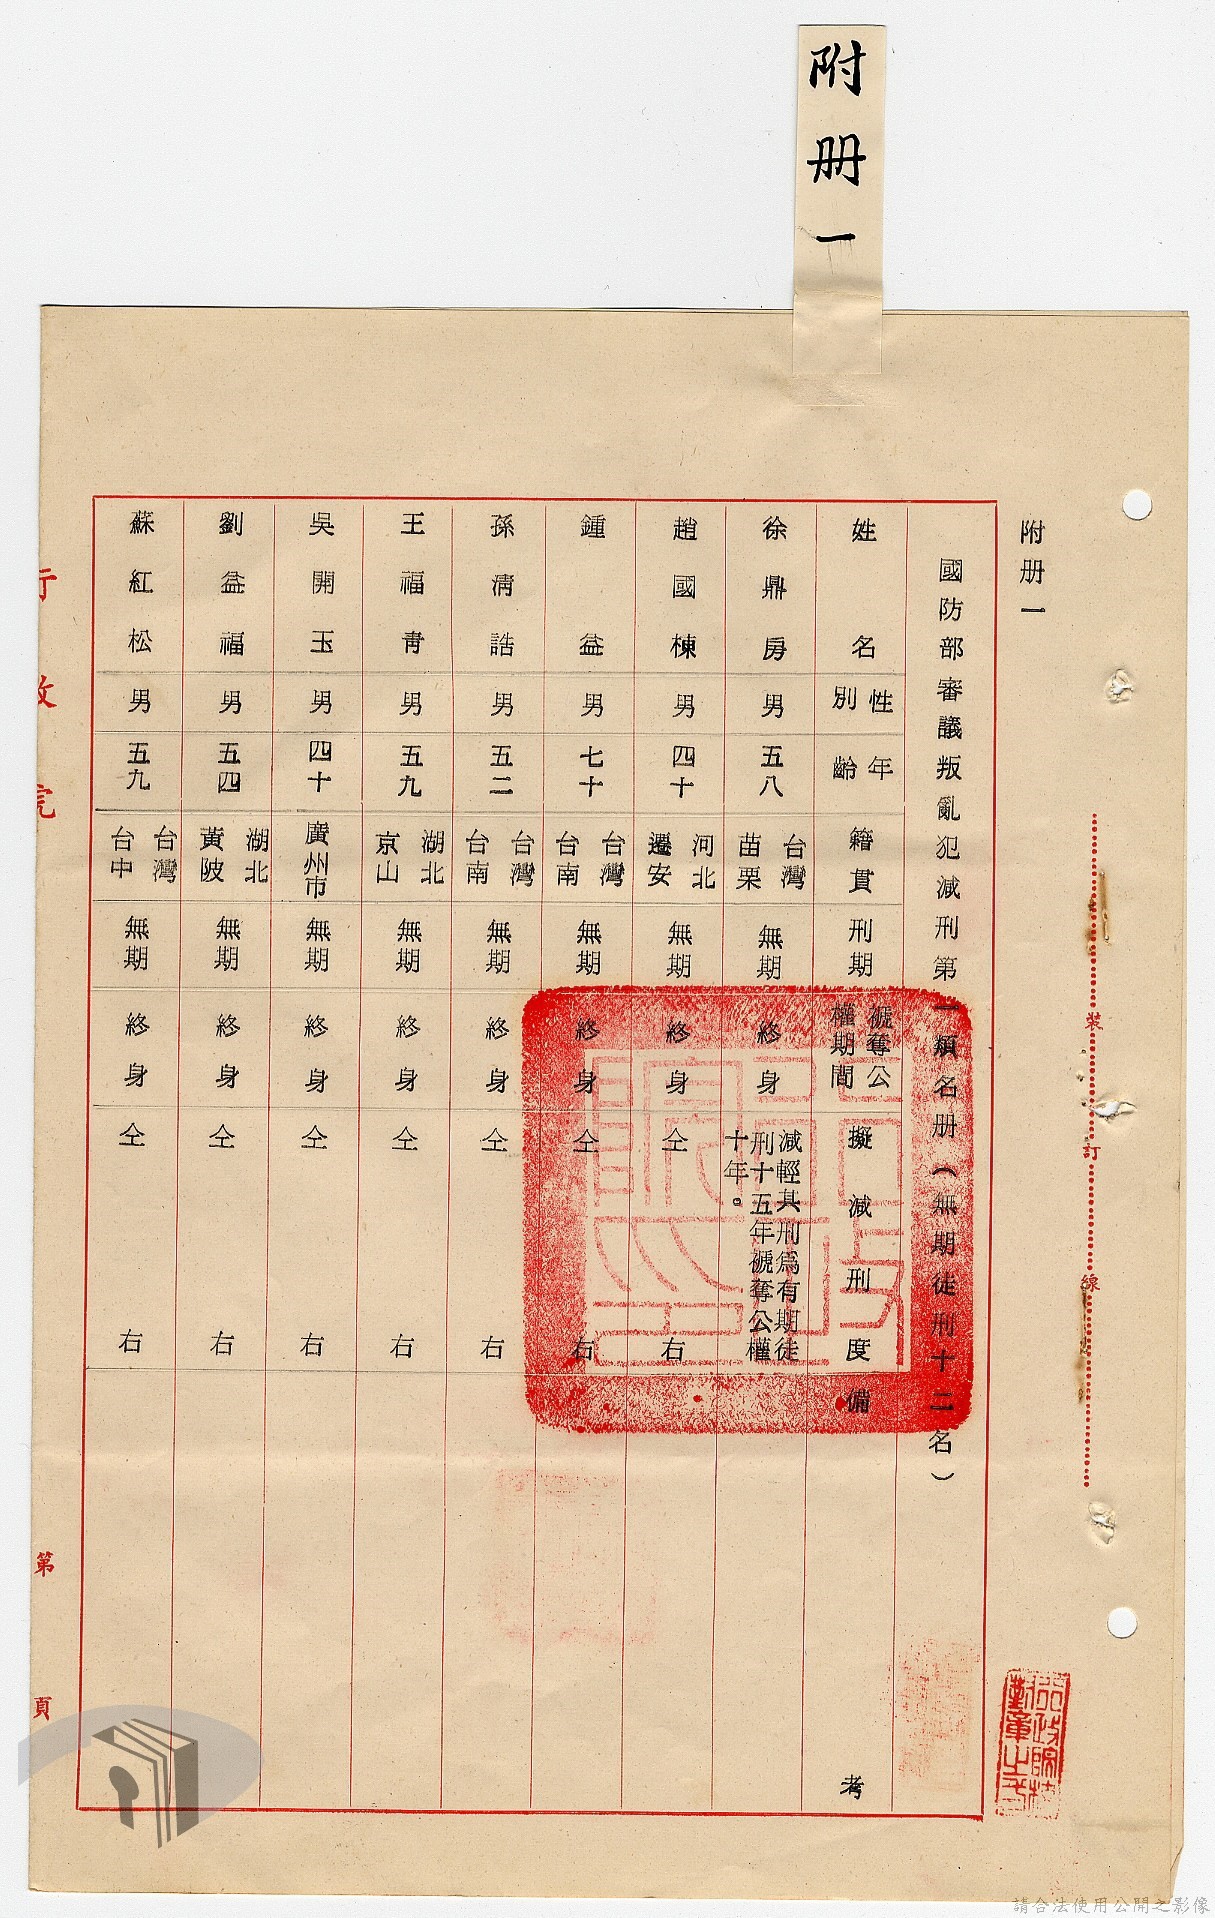 附册一
附册一
國防部審議叛亂犯減刑第一類名册（無期徒刑十二名）
姓名 性別 年齡 籍貫 刑期 褫奪公權期間 擬減刑度 備考
徐鼎房 男 五八 台灣苗栗 無期 終身 減輕其刑爲有期徒刑十五年褫奪公權十年。
趙國棟 男 四十 河北遷安 無期 終身 仝右
鍾益 男 七十 台灣台南 無期 終身 仝右
孫清誥 男 五二 台灣台南 無期 終身 仝右
王福青 男 五九 湖北京山 無期 終身 仝右
吳開玉 男 四十 廣州市 無期 終身 仝右
劉益福 男 五四 湖北黃陂 無期 終身 仝右
蘇紅松 男 五九 台灣台中 無期 終身 仝右
裝訂線
行政院
第頁
請合法使用公開之影像